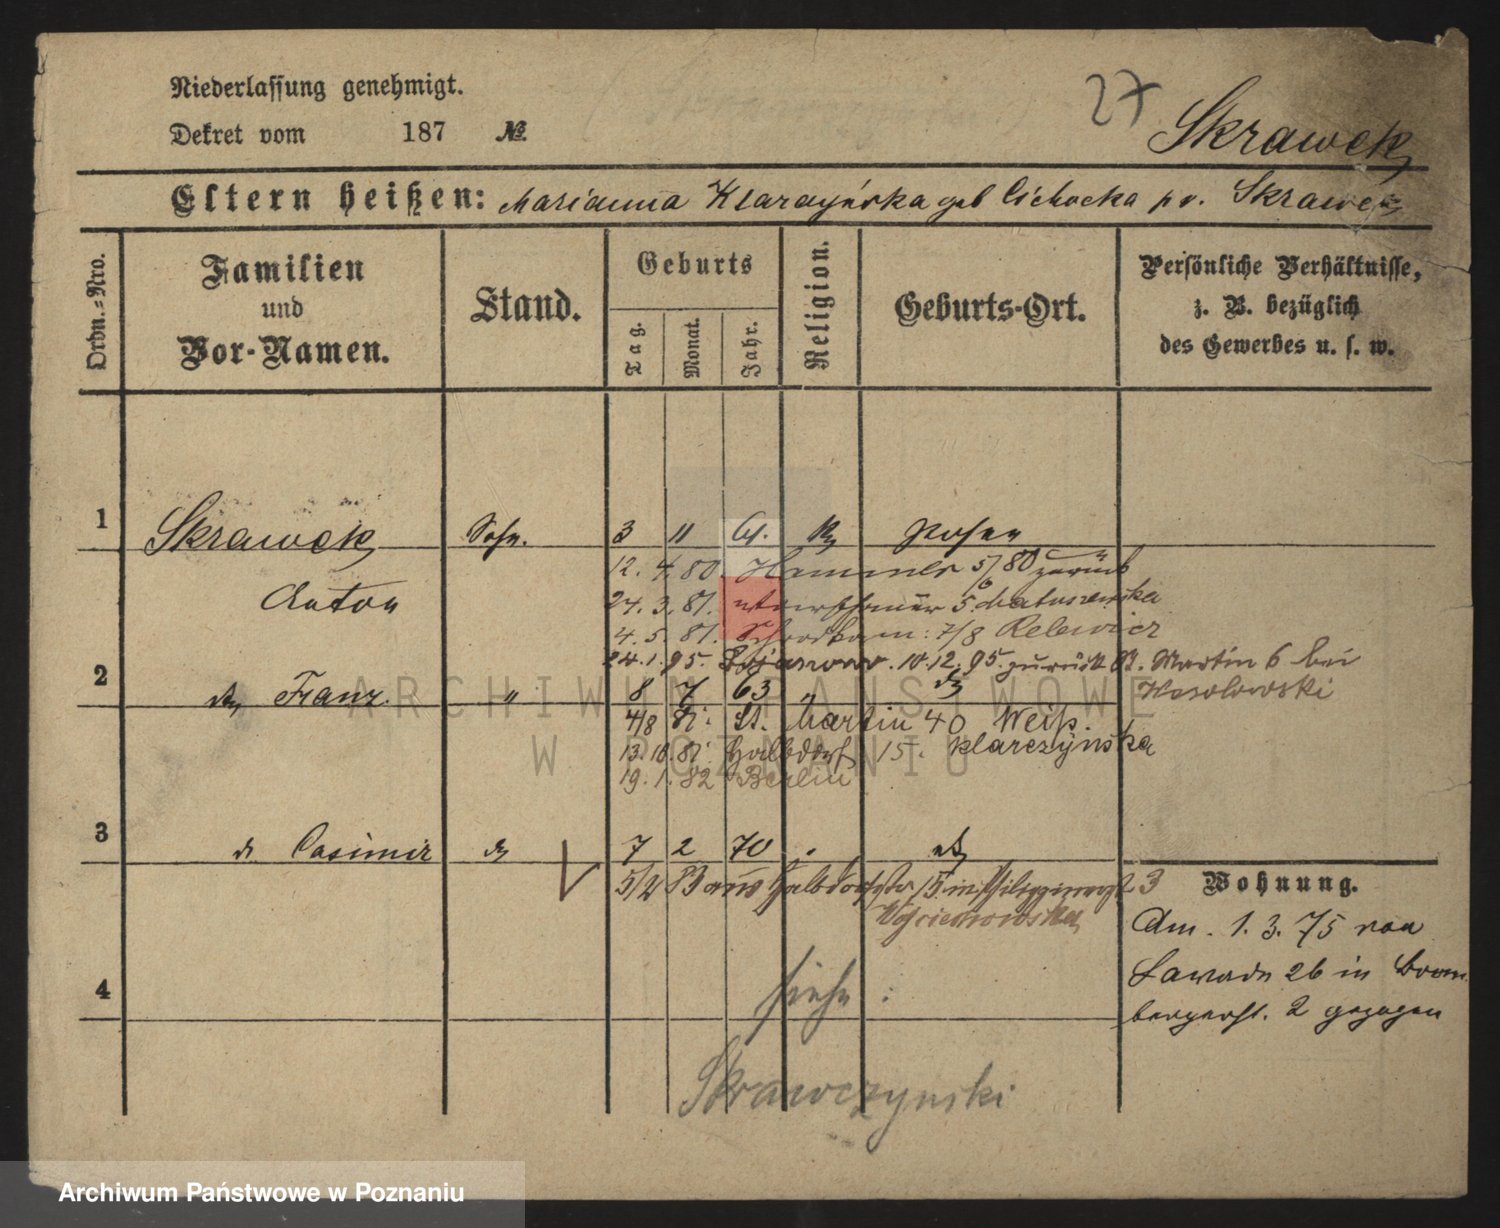 Niederlassung genehmigt.
27
Dekret vom 187 №
Skrawek
Eltern heißen: Marianna Klarzyńska geb Cichocka pv. Skrawek
Ordn.-Nro.
Familien
und
Vor-Namen.
Stand.
Geburts
Tag.
Monat.
Jahr.
Religion.
Geburts-Ort.
Persönliche Verhältnisse,
z. B. bezüglich
des Gewerbes u. s. w.
1 Skrawek Sohn. 3 11 61. Posen
Anton
12. 4. 80 5/6 80 zurück
24. 3. 81. 5. Matuszewska
4. 5. 81. 7/8 Relewicz
24. 1. 95. Bojanowo. 10. 12. 95. zurück St. Martin 6 bei
2 Franz. " 8 7 63 "
4/8 81. St. Martin 40 Weiß.
13. 10. 81 Halbdorf 15. Klarczynska
19. 1. 82 Berlin
3 Casimir 7 2 70
5/2 Halbdorfstr 15. 23
Wojciechowska
Wohnung.
Am. 1. 3. 75 von
Zawade 26 in Brom
bergerst. 2 gezogen
4 siehe:
Skrawczynski
ARCHIWUM PAŃSTWOWE
W POZNANIU
Archiwum Państwowe w Poznaniu